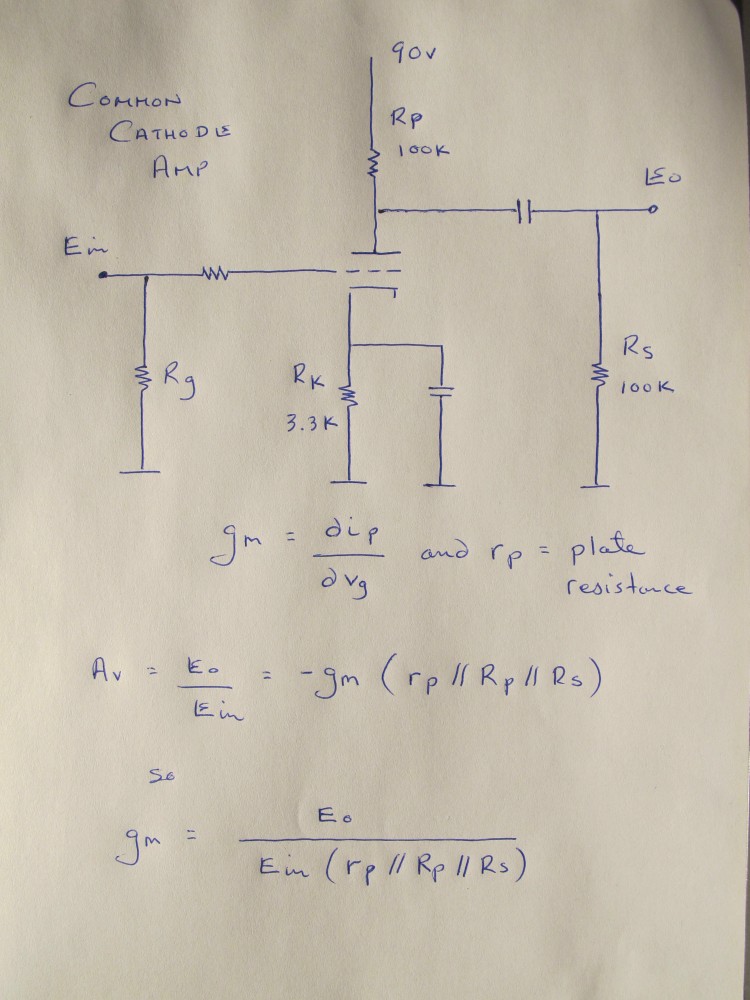 COMMON
CATHODE
AMP
90v
Rp
100K
Eo
Ein
Rg
RK
3.3K
Rs
100K
gm = ∂ip / ∂vg and rp = plate
resistance
Av = Eo / Ein = -gm (rp // Rp // Rs)
so
gm = Eo / Ein (rp // Rp // Rs)